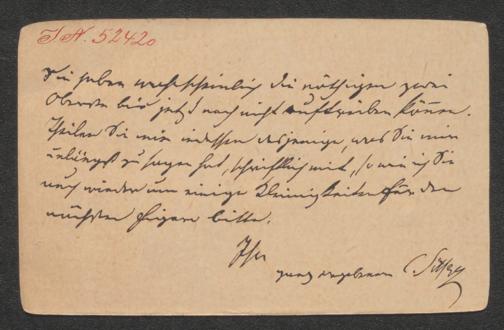 I.N. 52420
Sie haben wahrscheinlich die nöthigen zwei
bis jetzt noch nicht auftreiben können.
Theilen Sie mir indessen dasjenige, was Sie mir
zu sagen hat, schriftlich mit, so wie ich Sie
noch wieder um einige Kleinigkeiten für den
nächsten Figaro bitte.
Ihr
ganz ergebener C.